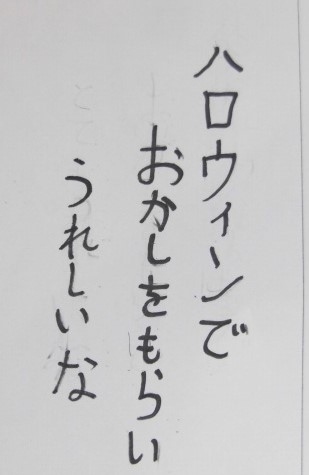 ハロウィンで
おかしをもらい
うれしいな